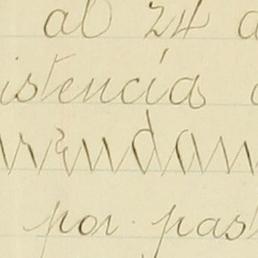 al 24 a
istencia
por past